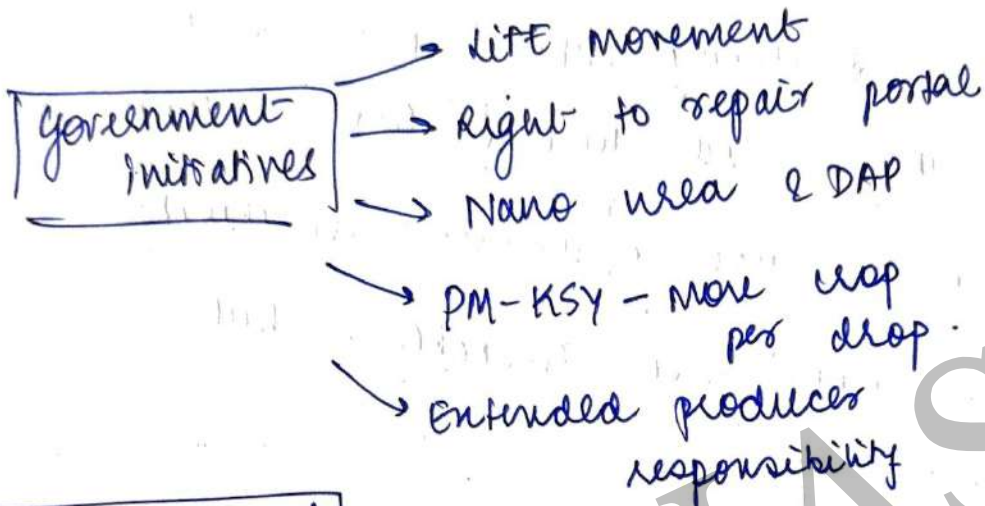 Government
initiatives
LiFE movement
Right to repair portal
Nano urea & DAP
PM-KSY - More crop
per drop.
Extended producer
responsibility